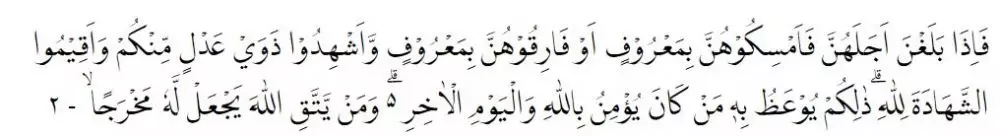 فَاِذَا بَلَغْنَ اَجَلَهُنَّ فَاَمْسِكُوْهُنَّ بِمَعْرُوْفٍ اَوْ فَارِقُوْهُنَّ بِمَعْرُوْفٍ وَّاَشْهِدُوْا ذَوَيْ عَدْلٍ مِّنْكُمْ وَاَقِيْمُوا
الشَّهَادَةَ لِلّٰهِ ۗذٰلِكُمْ يُوْعَظُ بِهٖ مَنْ كَانَ يُؤْمِنُ بِاللّٰهِ وَالْيَوْمِ الْاٰخِرِ ۗ ە وَمَنْ يَّتَّقِ اللّٰهَ يَجْعَلْ لَّهٗ مَخْرَجًا ۙ - ٢